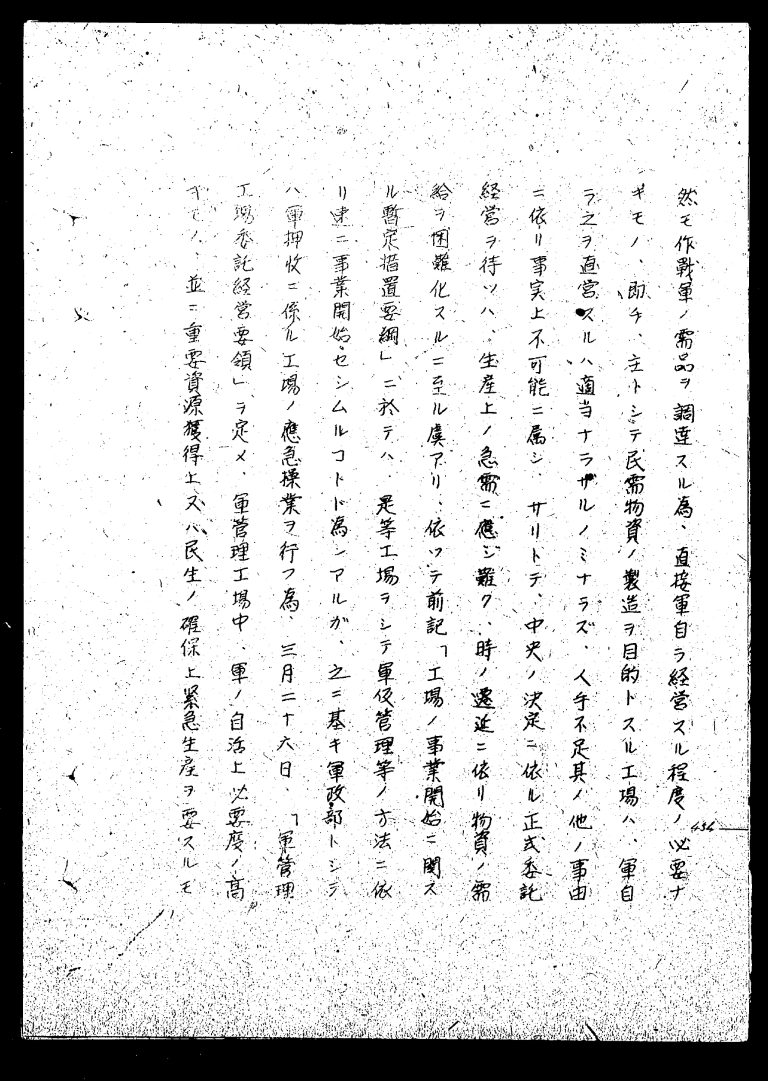 然モ作戰軍ノ需品ヲ調達スル為、直接軍自ラ経営スル程度ノ必要ナ
キモノ、即チ、主トシテ民需物資ノ製造ヲ目的トスル工場ハ、軍自
ラ之ヲ直営スルハ適当ナラザルノミナラズ、人手不足其ノ他ノ事由
ニ依リ事実上不可能ニ属シ、サリトテ、中央ノ決定ニ依ル正式委託
経営ヲ待ツハ、生産上ノ急需ニ應ジ難ク、時ノ遷延ニ依リ物資ノ需
給ヲ困難化スルニ至ル虞アリ、依ツテ前記「工場ノ事業開始ニ関ス
ル暫定措置要綱」ニ於テハ、是等工場ヲシテ軍仮管理等ノ方法ニ依
リ速ニ事業開始セシムルコトト為シアルガ、之ニ基キ軍政部トシテ
ハ軍押收ニ係ル工場ノ應急操業ヲ行フ為、三月二十六日、「軍管理
工場委託経営要領」ヲ定メ、軍管理工場中、軍ノ自活上必要度ノ高
キモノ、並ニ重要資源獲得上又ハ民生ノ確保上緊急生産ヲ要スルモ
434